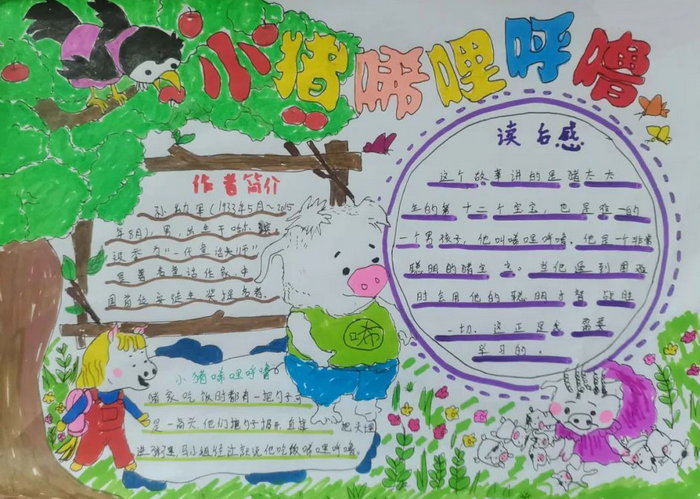 小猪唏哩呼噜
作者简介
孙幼军(1933年5月~2015
年8月),男,出生于哈尔滨
被称为“一代童话大师”
是著名童话作家中
国首位安徒生奖提名者。
读后感
这个故事讲的是猪太太
生的第十二个宝宝,也是唯一的
一个男孩子,他叫唏哩呼噜,他是一个非常
聪明的猪宝宝。当他遇到困难
时会用他的聪明才智战胜
一切,这正是我需要
学习的。
唏
小猪唏哩呼噜
猪家吃饭时都有一把勺子可
是一前天他们把勺子
进粥里马小姐经过就说他吃饭唏哩呼噜